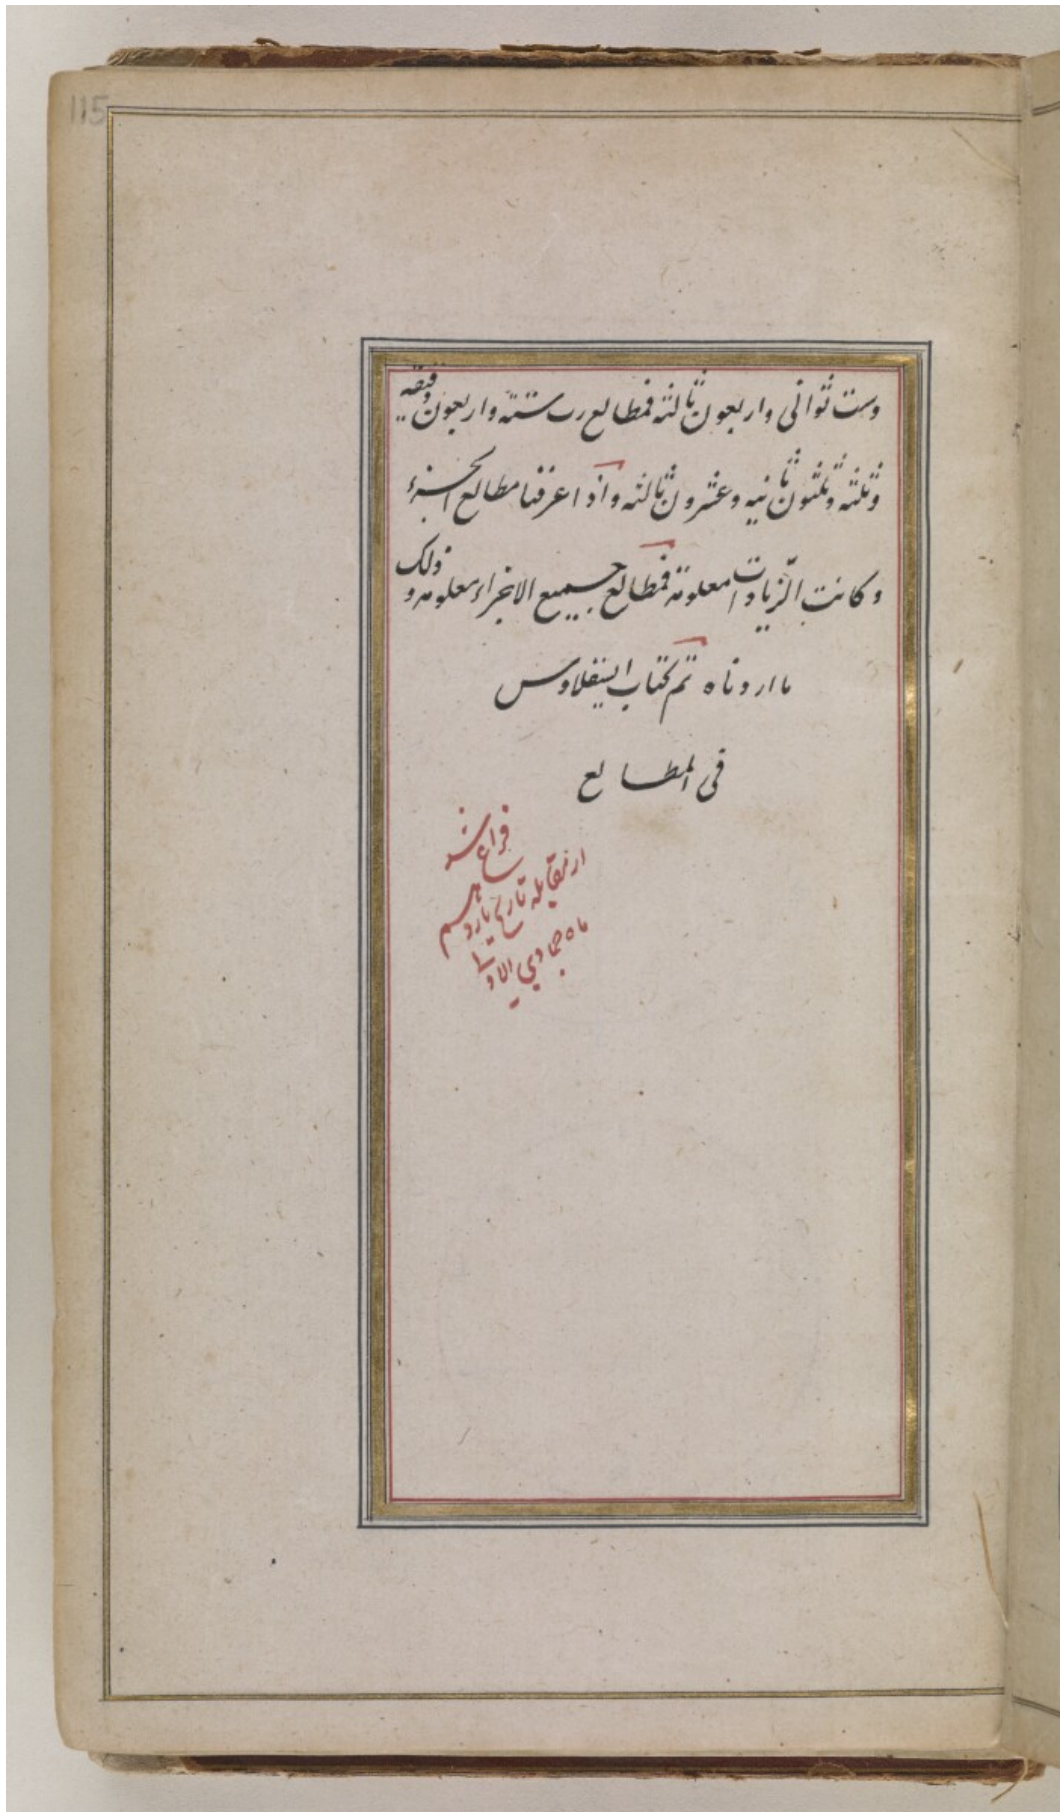 115
وست ثوانی واربعون ثالثه فمطالع رب ستته واربعون دقیقه
وثلثه وثلثون ثانیه وعشرون ثالثه واذا عرفنا مطالع الجزء
وکانت الزیادات معلومة فمطالع جمیع الاجزاء معلومه وذلک
ما اردناه تم کتاب ایسقلاوس
فی المطالع
فراغ شد
از مقابله تاریخ یازدهم
ماه جمادی الاولی